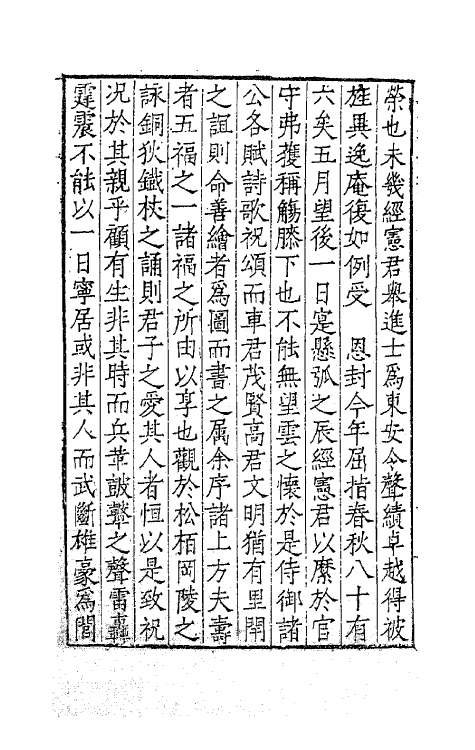 榮也未幾經憲君舉進士爲東安令聲績卓越得被
旌異逸庵復如例受　恩封今年屈指春秋八十有
六矣五月望後一日寔懸弧之辰經憲君以縻於官
守弗獲稱觴膝下也不能無望雲之懷於是侍御諸
公各賦詩歌祝頌而車君茂賢高君文明猶有里閈
之誼則命善繪者爲圖而書之屬余序諸上方夫壽
者五福之一諸福之所由以享也觀於松栢岡陵之
詠銅狄鐵杖之誦則君子之愛其人者恒以是致祝
况於其親乎顧有生非其時而兵革鼓鼙之聲雷轟
霆震不能以一日寧居或非其人而武斷雄豪爲閭